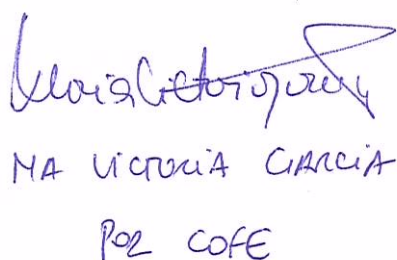 Maria Victoria Garcia
MA VICTORIA GARCIA
POR COFE